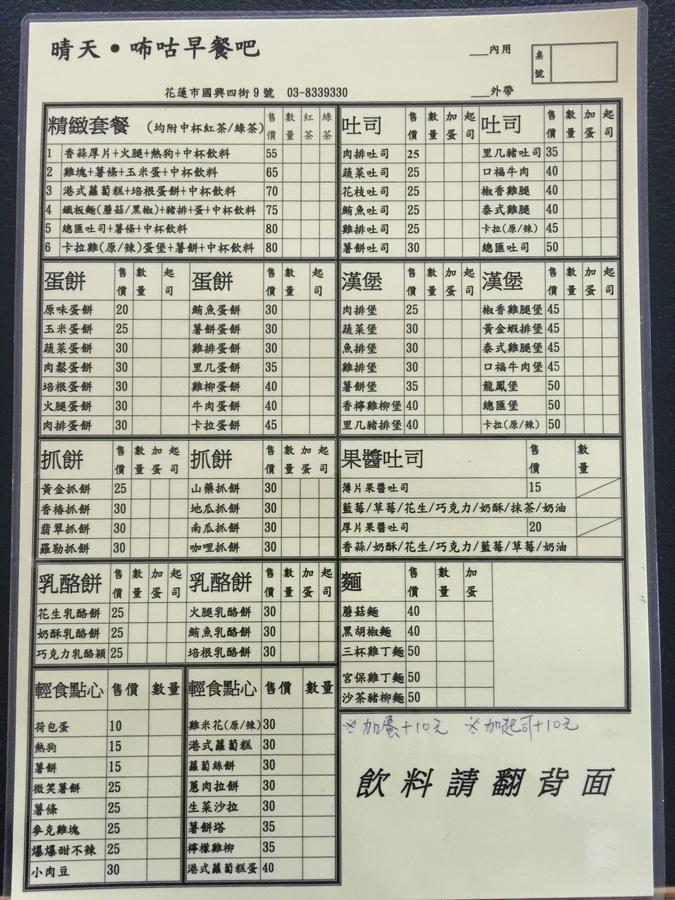 晴天•咘咕早餐吧
__內用
__外帶
桌號
花蓮市國興四街9號 03-8339330
精緻套餐 (均附中杯紅茶/綠茶) 售價 數量 紅茶 綠茶
1 香蒜厚片+火腿+熱狗+中杯飲料 55
2 雞塊+薯條+玉米蛋+中杯飲料 65
3 港式蘿蔔糕+培根蛋餅+中杯飲料 70
4 鐵板麵(蘑菇/黑椒)+豬排+蛋+中杯飲料 75
5 總匯吐司+薯條+中杯飲料 80
6 卡拉雞(原/辣)蛋堡+薯餅+中杯飲料 80
吐司 售價 數量 加蛋 加起司
肉排吐司 25
蔬菜吐司 25
花枝吐司 25
鮪魚吐司 25
雞排吐司 25
薯餅吐司 30
吐司 售價 數量 加蛋 加起司
里几豬吐司 35
口福牛肉 40
椒香雞腿 40
泰式雞腿 40
卡拉(原/辣) 45
總匯吐司 50
蛋餅 售價 數量 起司
原味蛋餅 20
玉米蛋餅 25
蔬菜蛋餅 30
肉鬆蛋餅 30
培根蛋餅 30
火腿蛋餅 30
肉排蛋餅 30
蛋餅 售價 數量 起司
鮪魚蛋餅 30
薯餅蛋餅 30
雞排蛋餅 30
里几蛋餅 35
雞柳蛋餅 40
牛肉蛋餅 40
卡拉蛋餅 45
漢堡 售價 數量 加蛋 加起司
肉排堡 25
蔬菜堡 30
魚排堡 30
雞排堡 30
薯餅堡 35
香檸雞柳堡 40
里几豬排堡 40
漢堡 售價 數量 加蛋 加起司
椒香雞腿堡 45
黃金蝦排堡 45
泰式雞腿堡 45
口福牛肉堡 45
龍鳳堡 50
總匯堡 50
卡拉(原/辣) 50
抓餅 售價 數量 加蛋 起司
黃金抓餅 25
香椿抓餅 30
翡翠抓餅 30
羅勒抓餅 30
抓餅 售價 數量 加蛋 起司
山藥抓餅 30
地瓜抓餅 30
南瓜抓餅 30
咖哩抓餅 30
果醬吐司 售價 數量
薄片果醬吐司 15
藍莓/草莓/花生/巧克力/奶酥/抹茶/奶油
厚片果醬吐司 20
香蒜/奶酥/花生/巧克力/藍莓/草莓/奶油
乳酪餅 售價 數量 加蛋 起司
花生乳酪餅 25
奶酥乳酪餅 25
巧克力乳酪穎 25
乳酪餅 售價 數量 加蛋 起司
火腿乳酪餅 30
鮪魚乳酪餅 30
培根乳酪餅 30
麵 售價 數量 加蛋
蘑菇麵 40
黑胡椒麵 40
三杯雞丁麵 50
宮保雞丁麵 50
沙茶豬柳麵 50
輕食點心 售價 數量
荷包蛋 10
熱狗 15
薯餅 15
微笑薯餅 25
薯條 25
麥克雞塊 25
爆爆甜不辣 25
小肉豆 30
輕食點心 售價 數量
雞米花(原/辣) 30
港式蘿蔔糕 30
蘿蔔絲餅 30
蔥肉拉餅 30
生菜沙拉 30
薯餅塔 35
檸檬雞柳 35
港式蘿蔔糕蛋 40
※加蛋+10元 ※加起司+10元
飲料請翻背面